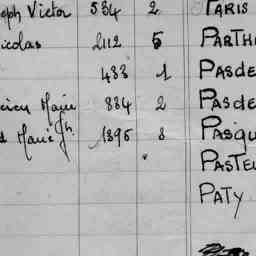 oph Victor 534 2 PARIS
icolas 2112 5 PARTH
433 1 PASDE
cien Marie 834 2 PASDE
d Marie Jh 1896 8 PASQU
PASTEU
PATY